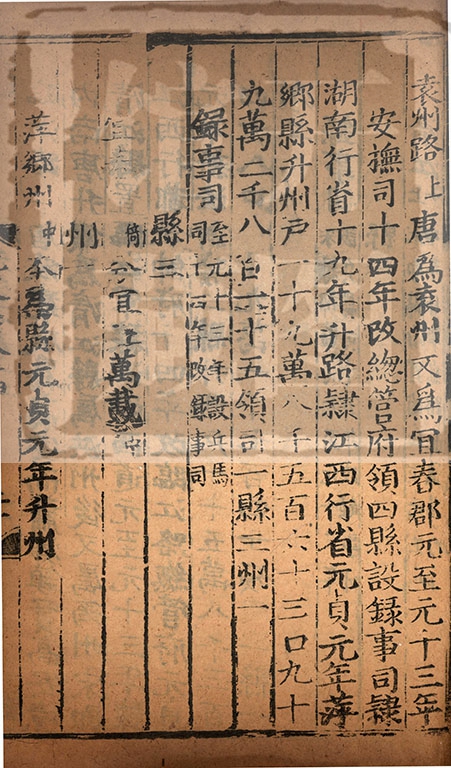 袁州路上唐為袁州又為宜春郡元至元十三年
安撫司十四年改總管府領四縣設録事司隸
湖南行省十九年升路隸江西行省元貞元年萍
鄉縣升州戶一十九萬八千五百六十三口九十
九萬二千八百一十五領司一縣三州一
録事司至元十三年設兵馬
司十四年改録事司
縣三
宜倚分宜上萬載中
州
萍鄉州中本為縣元貞元年升州